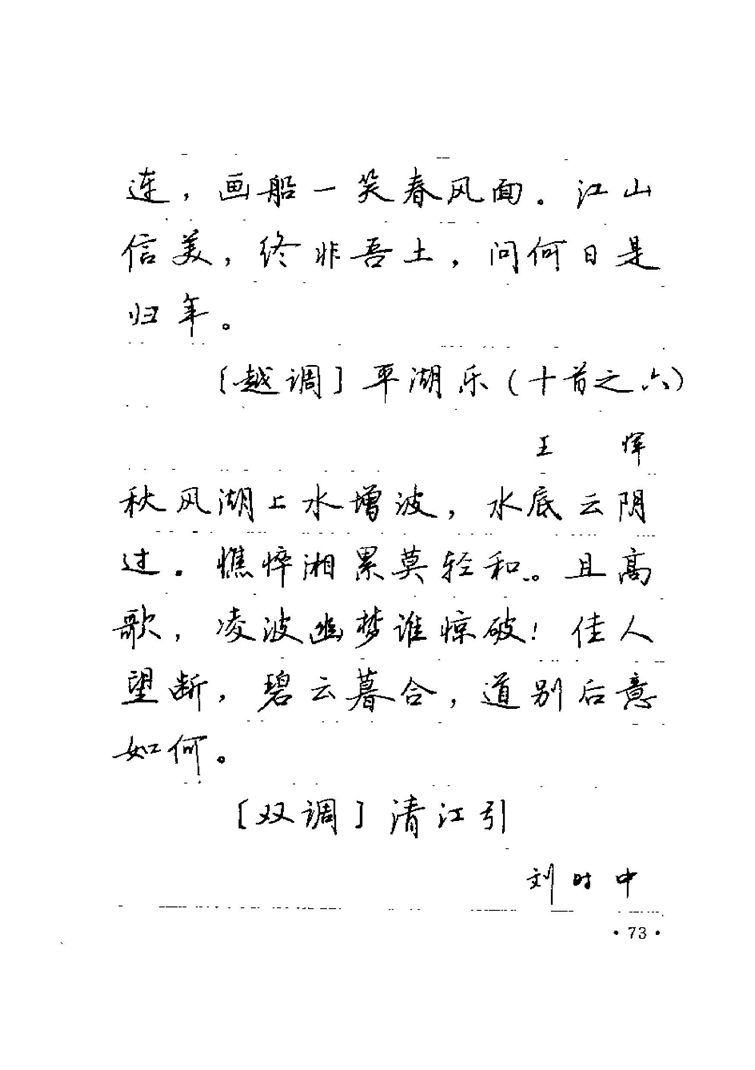 连，画船一笑春风面。江山
信美，终非吾土，问何日是
归年。
［越调］平湖乐（十首之六）
王 恽
秋风湖上水增波，水底云阴
过。憔悴湘累莫轻和。且高
歌，凌波幽梦谁惊破！佳人
望断，碧云暮合，道别后意
如何。
［双调］清江引
刘时中
·73·